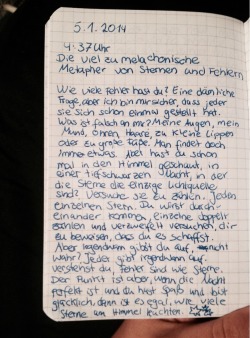 5.1.2014
4:37 Uhr
Die viel zu melachonische
Metapher von Sternen und Fehlern
Wie viele Fehler hast du? Eine dämliche
Frage, aber ich bin mir sicher, dass jeder
sie sich schon einmal gestellt hat.
Was ist falsch an mir? Meine Augen, mein
Mund, Ohren, Haare, zu kleine Lippen
oder zu große Füße. Man findet doch
immer etwas. Aber hast du schon
mal in den Himmel geschaut, in
einer tiefschwarzen Nacht, in der
die Sterne die einzige Lichtquelle
sind? Versuche sie zu zählen. Jeden
einzelnen Stern. Du wirst durch-
einander kommen, einzelne doppelt
zählen und verzweifelt versuchen, dir
zu beweisen, dass du es schaffst.
Aber irgendwann gibst du auf, nicht
wahr? Jeder gibt irgendwann auf.
Verstehst du, Fehler sind wie Sterne.
Der Punkt ist aber, wenn die Nacht
perfekt ist und du hast Spaß und bist
glücklich, dann ist es egal, wie viele
Sterne am Himmel leuchten.